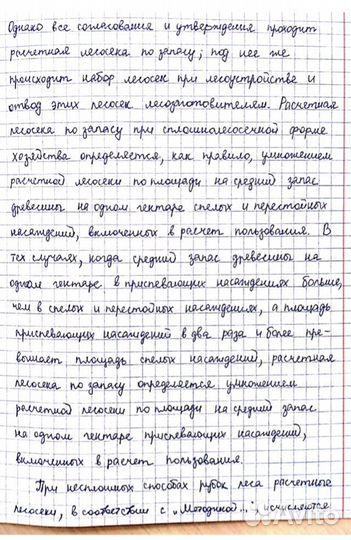 Однако все согласования и утверждения проходит
расчетная лесосека по запасу; под нее же
происходит набор лесосек при лесоустройстве и
отвод этих лесосек лесозаготовителям. Расчетная
лесосека по запасу при сплошнолесосечной форме
хозяйства определяется, как правило, умножением
расчетной лесосеки по площади на средний запас
древесины на одном гектаре спелых и перестойных
насаждений, включенных в расчет пользования. В
тех случаях, когда средний запас древесины на
одном гектаре в приспевающих насаждениях больше,
чем в спелых и перестойных насаждениях, а площадь
приспевающих насаждений в два раза и более пре-
вышает площадь спелых насаждений, расчетная
лесосека по запасу определяется умножением
расчетной лесосеки по площади на средний запас
на одном гектаре приспевающих насаждений,
включенных в расчет пользования.
При несплошных способах рубок леса расчетные
лесосеки, в соответствии с „Методикой...", исчисляются
Avito